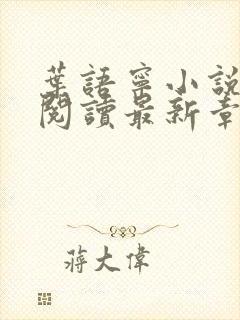 葉語寧小說
閱讀最新章
蔣大偉